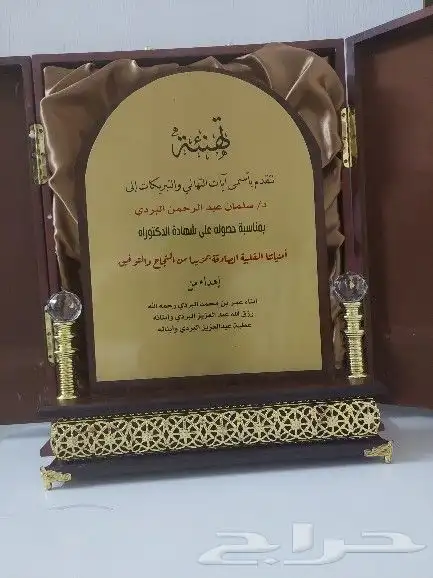 تهنئة
نتقدم بأسمى آيات التهاني والتبريكات إلى
د/ سلمان عبد الرحمن البردي
بمناسبة حصوله على شهادة الدكتوراه
أمنياتنا القلبية الصادقة بمزيدا من النجاح والتوفيق
إهداء من
ابناء عمر بن محمد البردي رحمه الله
رزق الله عبد العزيز البردي وأبنائه
عطية عبدالعزيز البردي وأبنائه
حراج